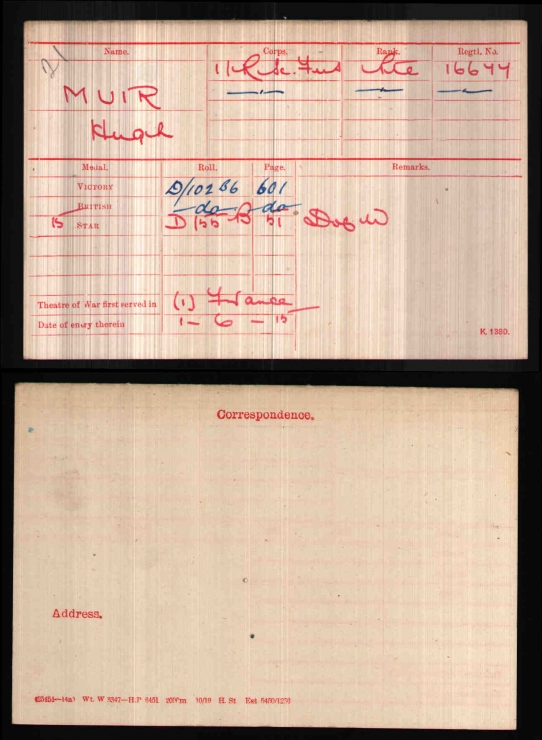 21
Name. Corps. Rank. Regtl. No.
MUIR 11/R. Sc. Fus Pte 16644
Hugh
Medal. Roll. Page. Remarks.
VICTORY D/102 B6 601
BRITISH do do
15 STAR D 155 B 51 D of W
Theatre of War first served in (1) France
Date of entry therein 1 - 6 - 15
K. 1380.
Correspondence.
Address.
Wt. W 5347—H.P. 200m 10/19 H. St